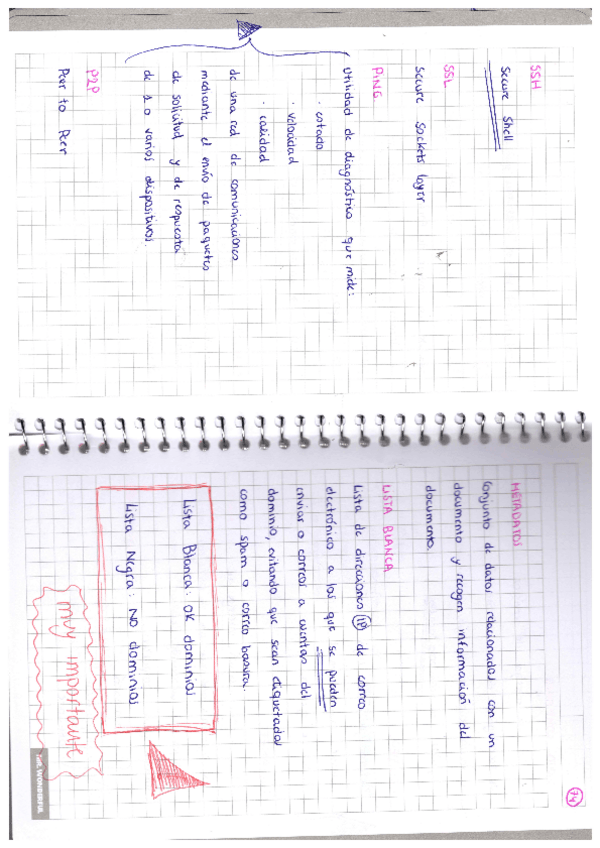 SSH
Secure Shell
SSL
Secure Sockets layer
PING.
Utilidad de diagnóstico que mide:
· estado
· velocidad
· calidad
de una red de comunicaciones
mediante el envío de paquetes
de solicitud y de respuesta
de 1 o varios dispositivos.
P2P
Peer to Peer
74
METADATOS
Conjunto de datos relacionados con un
documento y recogen información del
documento.
LISTA BLANCA
Lista de direcciones IP de correo
electrónico a los que se pueden
enviar o correos a cuentas del
dominio, evitando que sean etiquetados
como spam o correo basura.
Lista Blanca: OK dominios
Lista Negra: NO dominios
muy importante